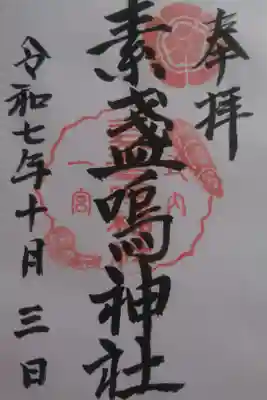 奉拝
素盞嗚神社
令和七年十月三日